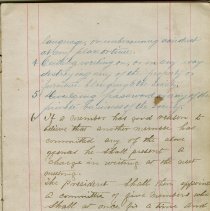 language, or unbecoming conduct
at any place or time.
4 Cutting writing on, or in any way
destroying any of the property or
furniture belonging to the
5 Divulging the password or any of the
private business of the
If a member has good reason to
believe that another member has
committed any of the above
he shall present a
charge in writing at the next
meeting.
The President shall then appoint
a committee of five members who
shall at once fix a time and